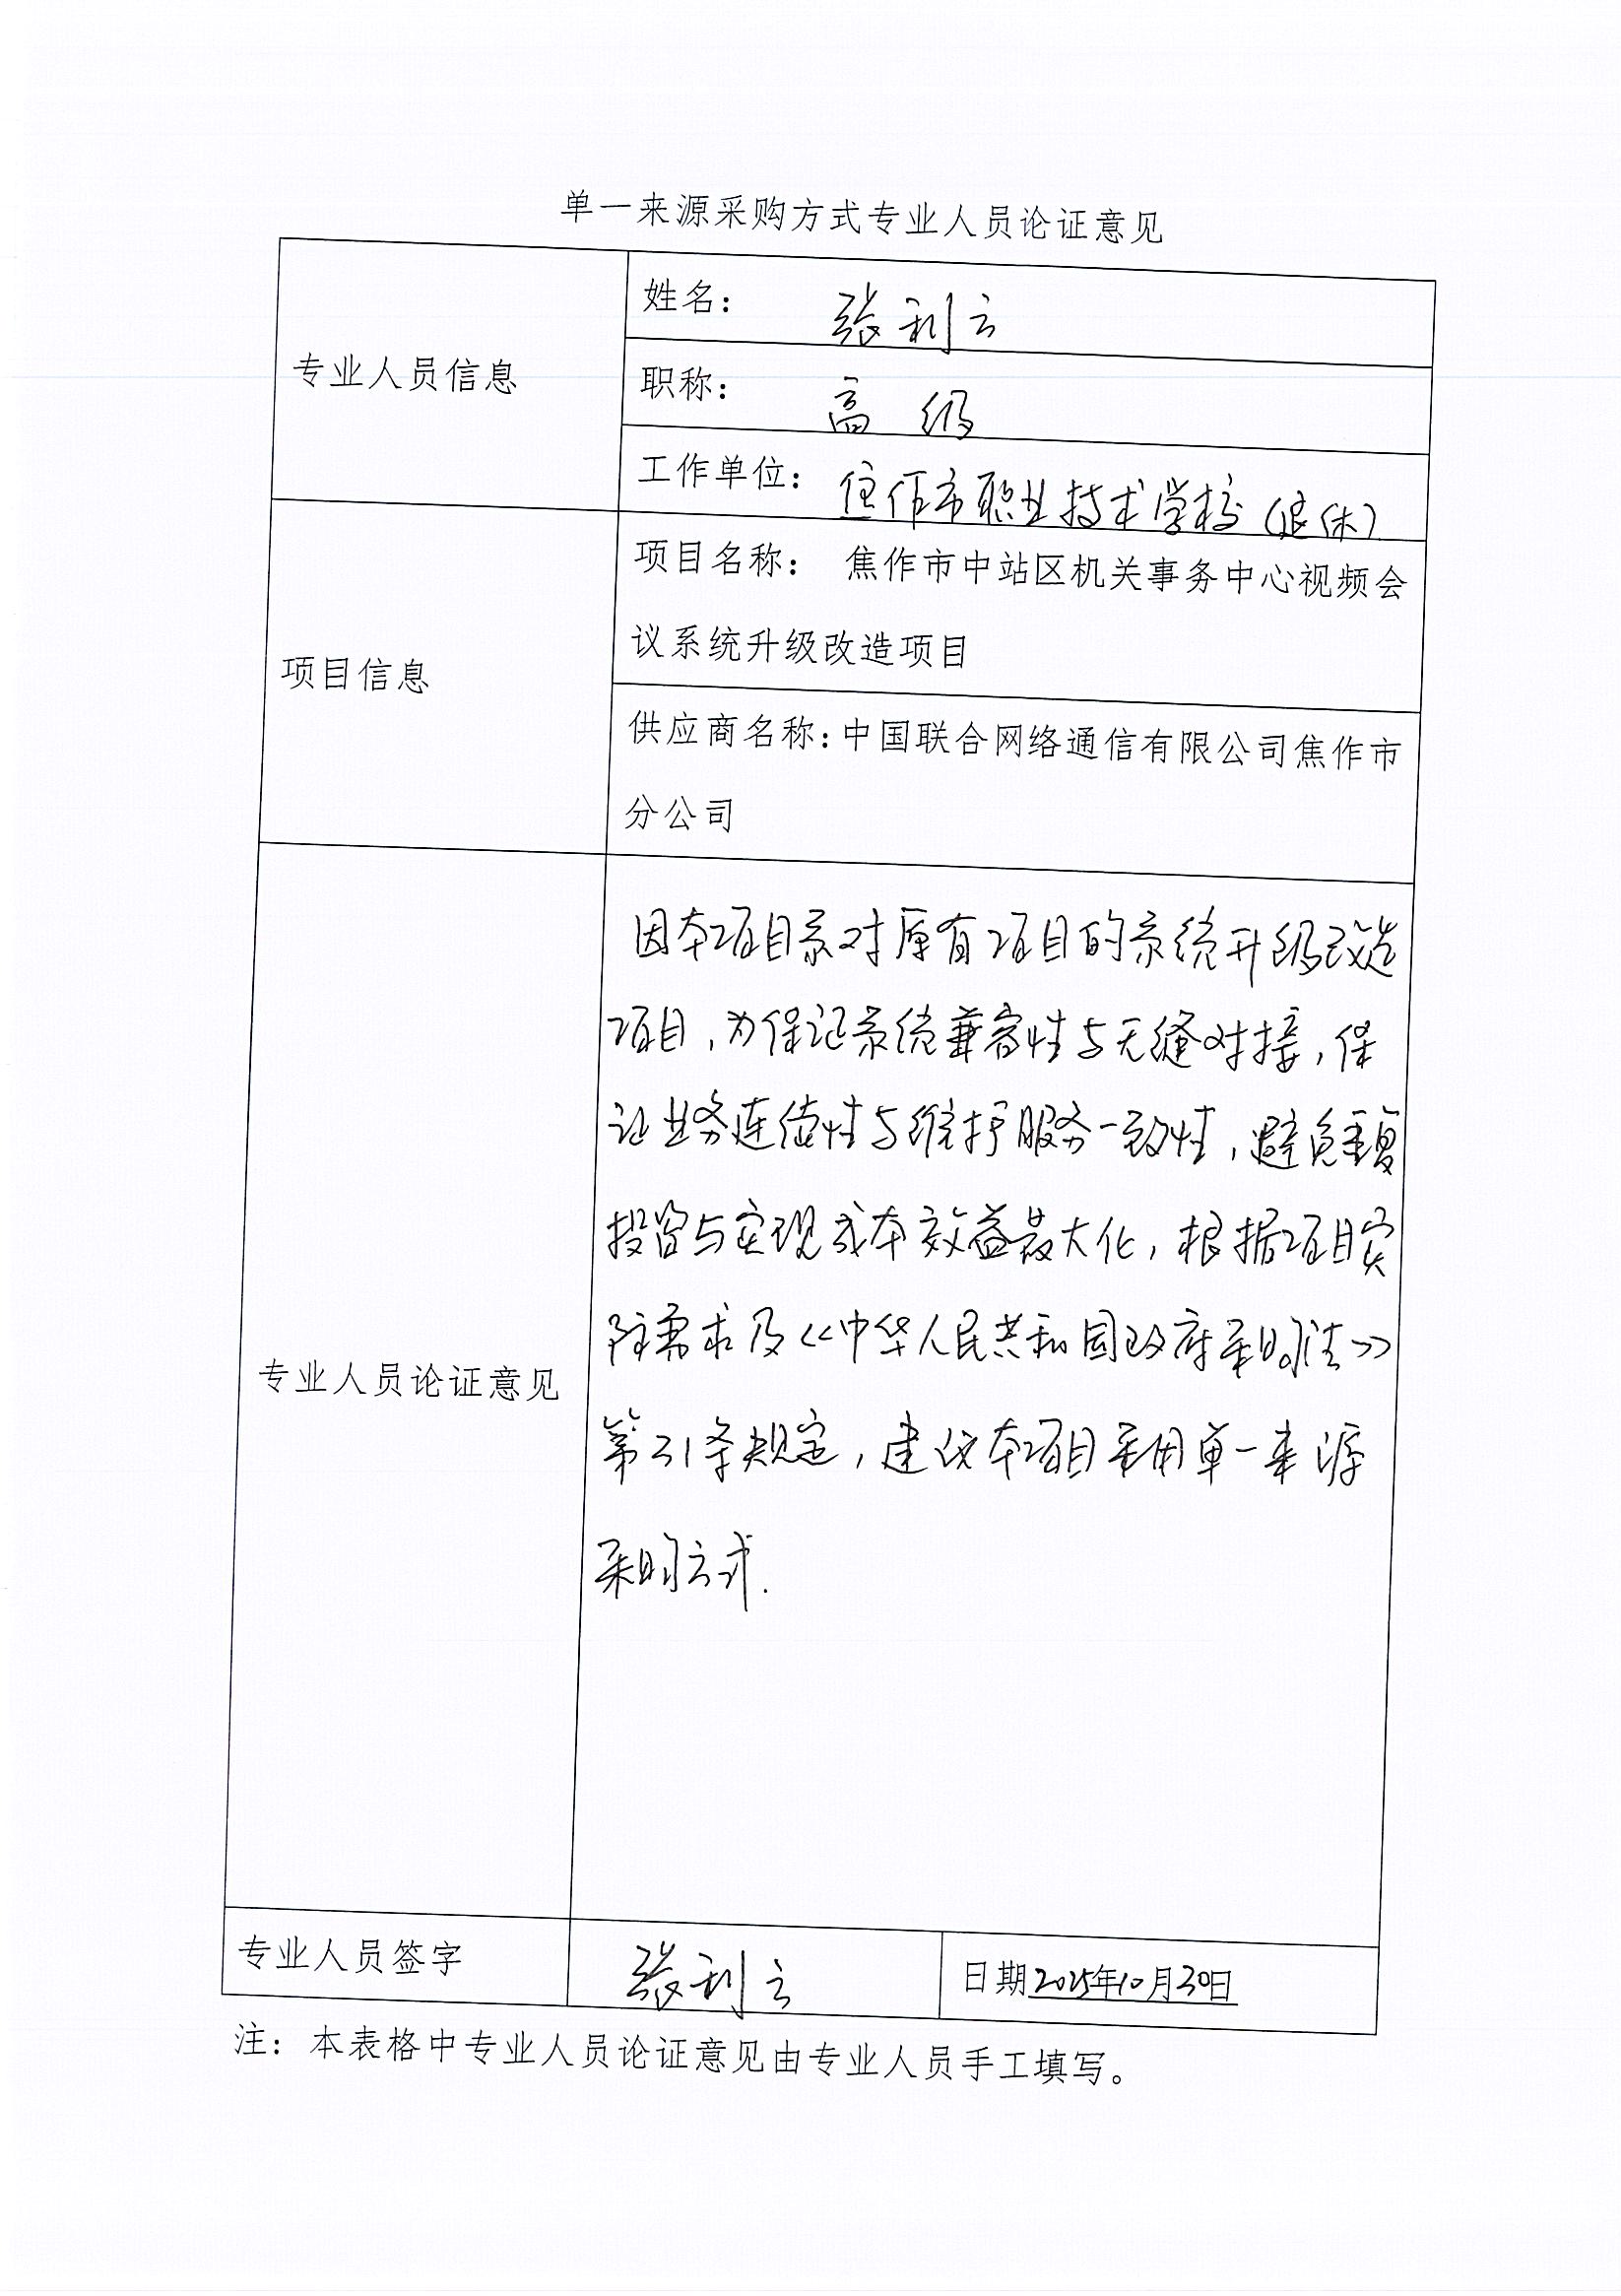 单一来源采购方式专业人员论证意见
专业人员信息
姓名： 张利云
职称： 高 级
工作单位： 焦作市职业技术学校（退休）
项目信息
项目名称： 焦作市中站区机关事务中心视频会
议系统升级改造项目
供应商名称：中国联合网络通信有限公司焦作市
分公司
专业人员论证意见
因本项目系对原有项目的系统升级改造
项目，为保证系统兼容性与无缝对接，保
证业务连续性与维护服务一致性，避免重复
投资与实现成本效益最大化，根据项目实
际需求及《中华人民共和国政府采购法》
第31条规定，建议本项目采用单一来源
采购方式.
专业人员签字
张利云
日期2025年10月30日
注：本表格中专业人员论证意见由专业人员手工填写。